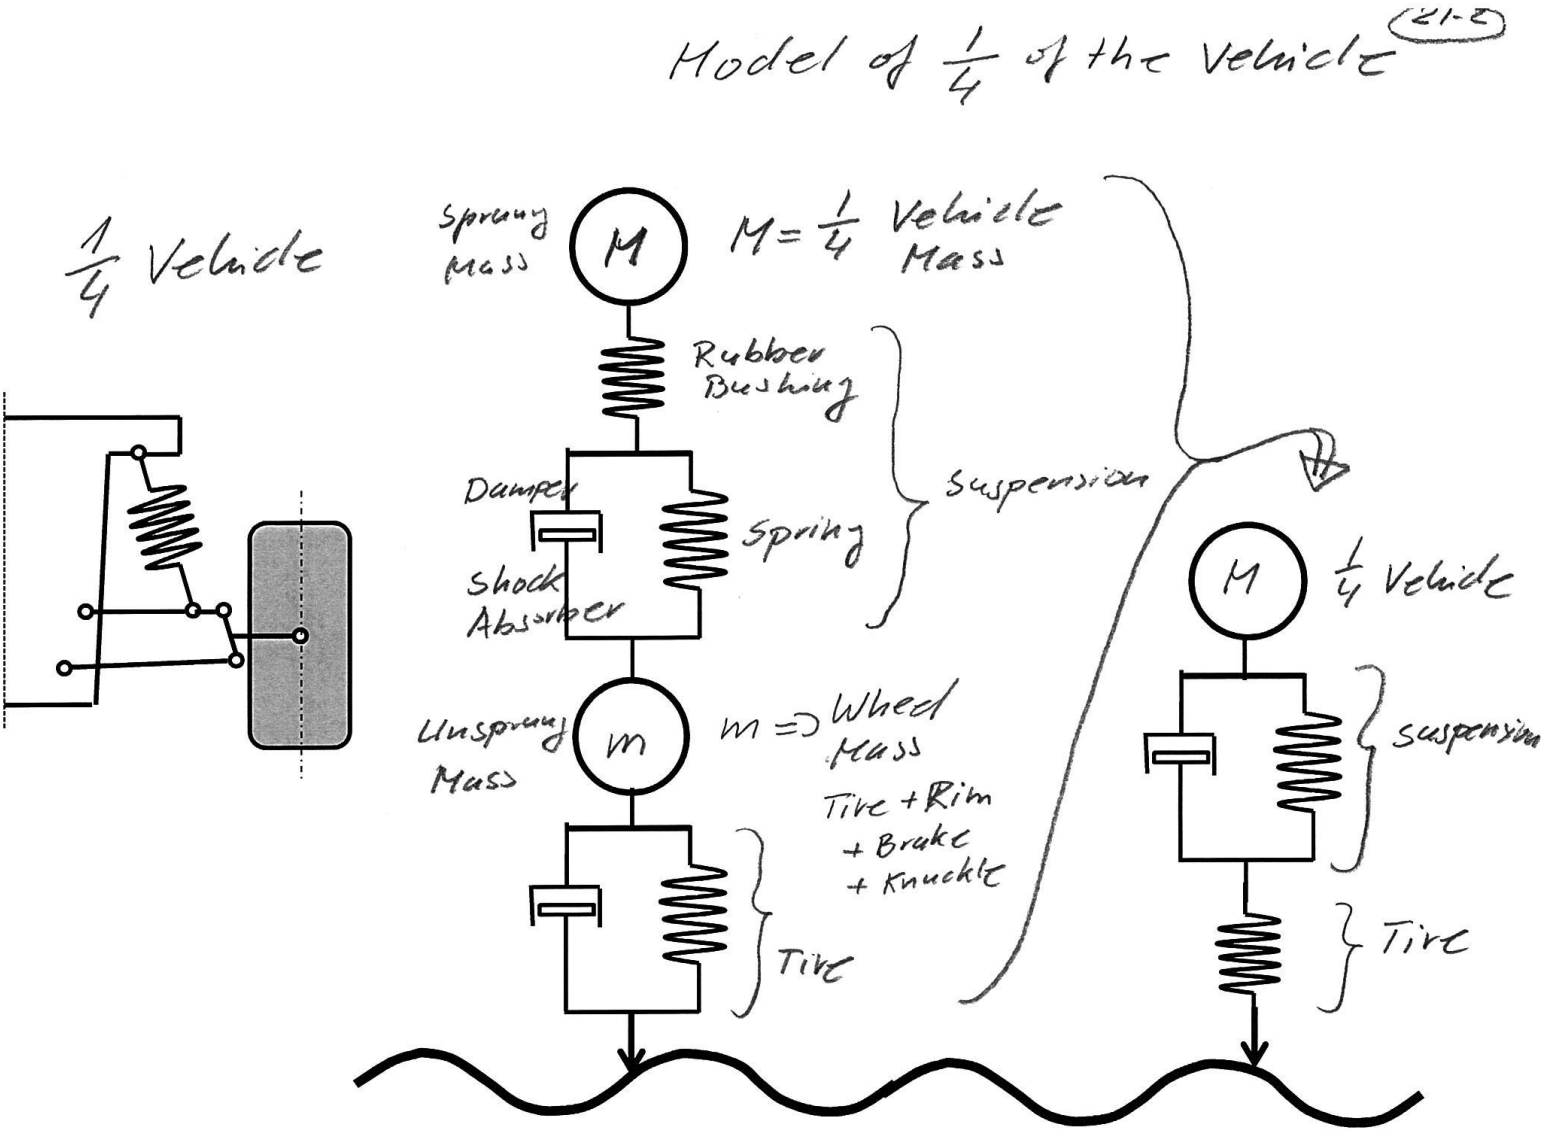 21-2
Model of 1/4 of the Vehicle
1/4 Vehicle
Sprung
Mass
M
M = 1/4 Vehicle
Mass
Rubber
Bushing
Damper
Shock
Absorber
Spring
Suspension
Unsprung
Mass
m
m => Wheel
Mass
Tire + Rim
+ Brake
+ Knuckle
Tire
M
1/4 Vehicle
Suspension
Tire